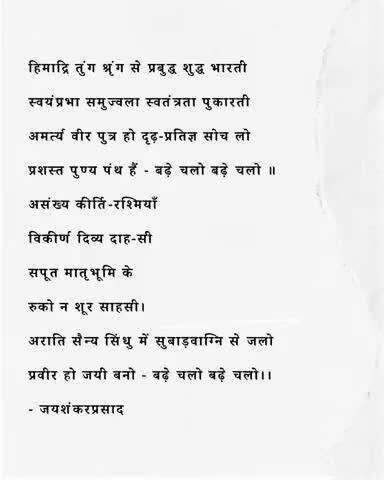 हिमाद्रि तुंग श्रृंग से प्रबुद्ध शुद्ध भारती
स्वयंप्रभा समुज्वला स्वतंत्रता पुकारती
अमर्त्य वीर पुत्र हो दृढ़-प्रतिज्ञ सोच लो
प्रशस्त पुण्य पंथ हैं - बढ़े चलो बढ़े चलो ॥
असंख्य कीर्ति-रश्मियाँ
विकीर्ण दिव्य दाह-सी
सपूत मातृभूमि के
रुको न शूर साहसी।
अराति सैन्य सिंधु में सुबाड़वाग्नि से जलो
प्रवीर हो जयी बनो - बढ़े चलो बढ़े चलो।।
- जयशंकरप्रसाद